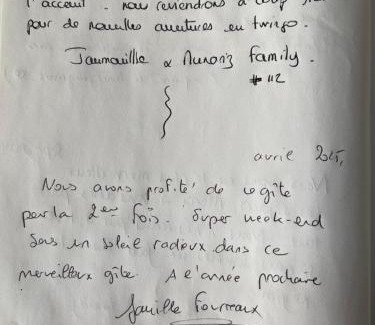 l'acceuil. nous reviendrons à coup
pour de nouvelles aventures en twingo.
family.
# 112
avril 2015,
Nous avons profité de ce gîte
pour la 2ème fois. Super week-end
sous un soleil radieux dans ce
merveilleux gîte. A l'année prochaine
famille Fourreaux